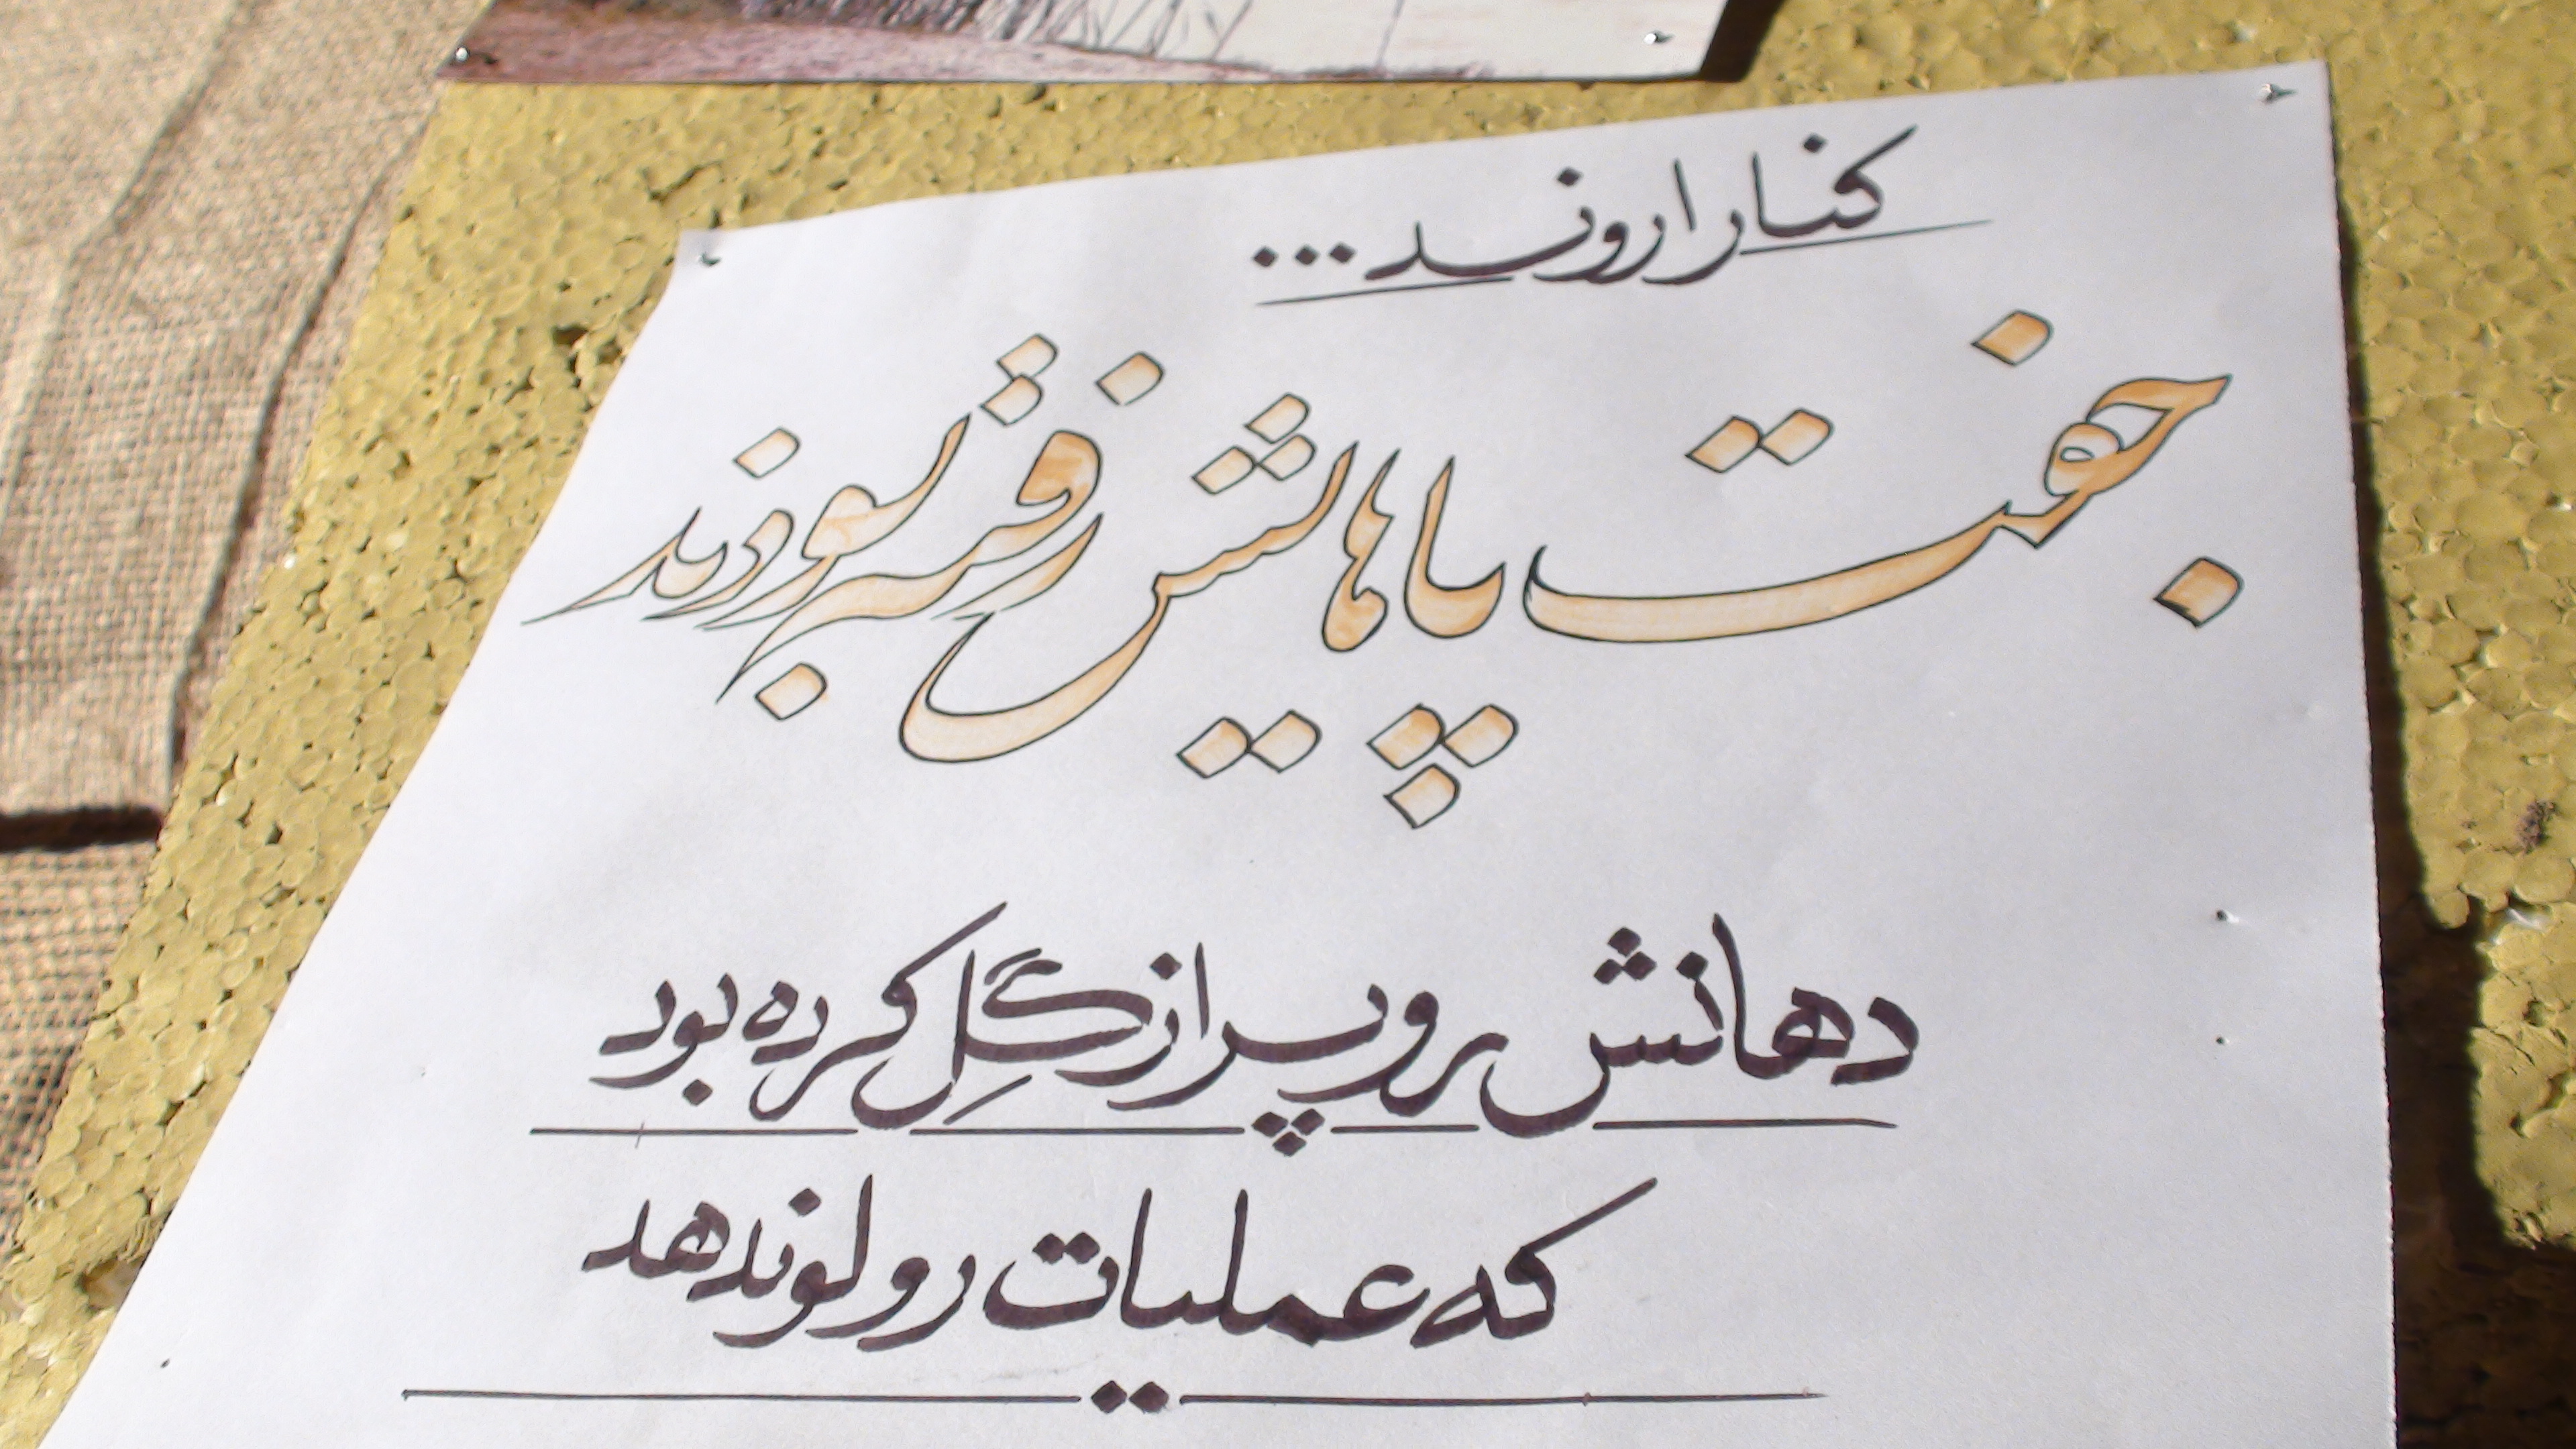 کنار اروند...
جفت پاهایش رفته بود رو مین
دهانش رو پر از گِل کرده بود
که عملیات رو لو ندهد